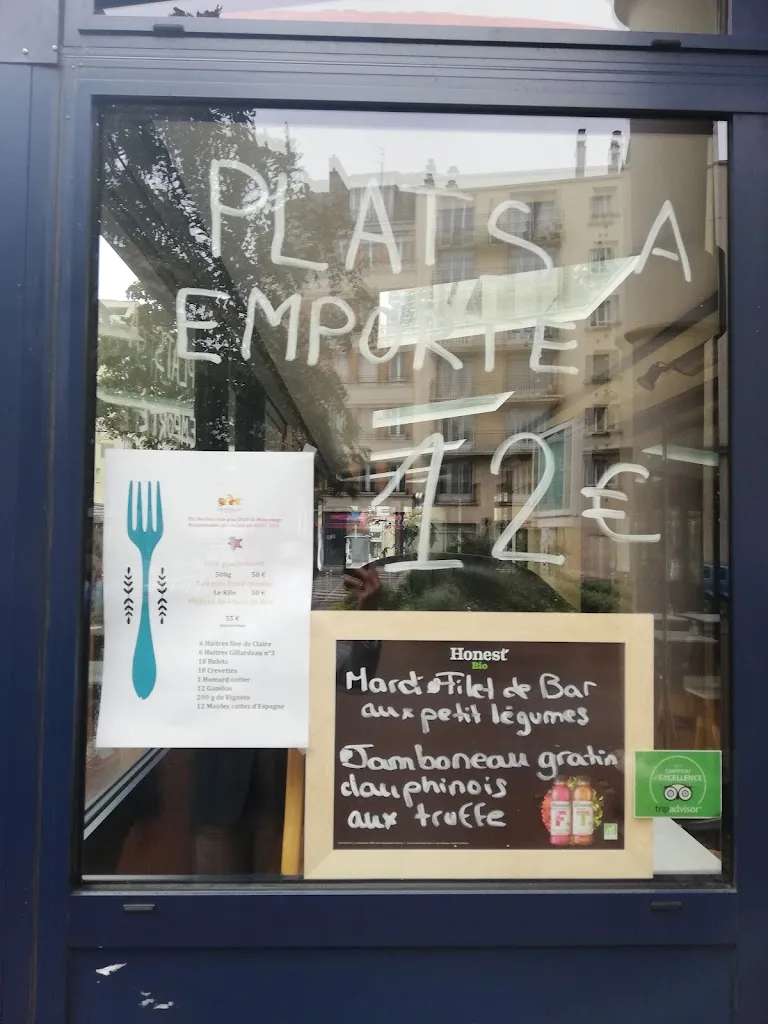 PLATS A
EMPORTE
12€
500g 50 €
Le Kilo 50 €
55 €
6 Huîtres fine de Claire
6 Huitres Gillardeau n°3
18 Bulots
18 Crevettes
1 Homard entier
12 Gambas
200 g de Vignots
12 Moules cuites d'Espagne
Honest
Bio
Mardi Filet de Bar
aux petit légumes
Jamboneau gratin
dauphinois
aux truffe
EXCELLENCE
tripadvisor